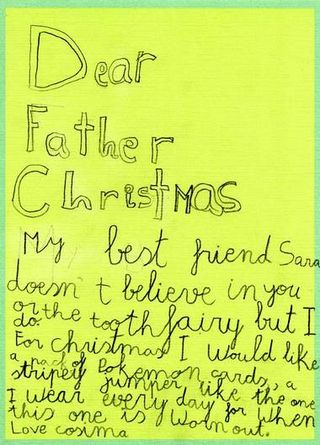 Dear
Father
Christmas
My best friend Sara
doesn't believe in you
or the tooth fairy but I
do.
For christmas I would like
a pack of Pokemon cards, a
stripey jumper, like the one
I wear every day for when
this one is worn out.
Love cosima